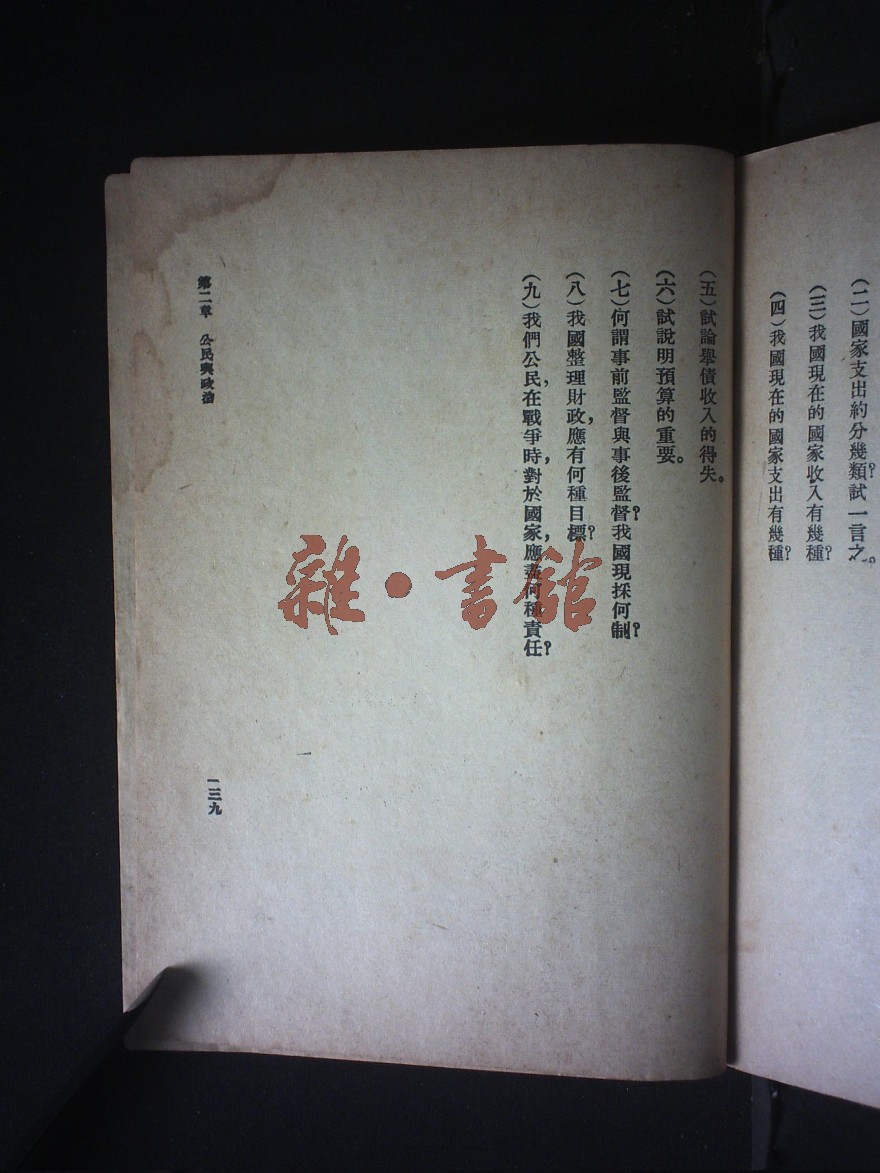 (二)國家支出約分幾類?試一言之。
(三)我國現在的國家收入有幾種?
(四)我國現在的國家支出有幾種?
(五)試論舉債收入的得失。
(六)試說明預算的重要。
(七)何謂事前監督與事後監督?我國現採何制?
(八)我國整理財政,應有何種目標?
(九)我們公民,在戰爭時,對於國家,應盡何種責任?
第二章 公民與政治
一三九
雜·書館